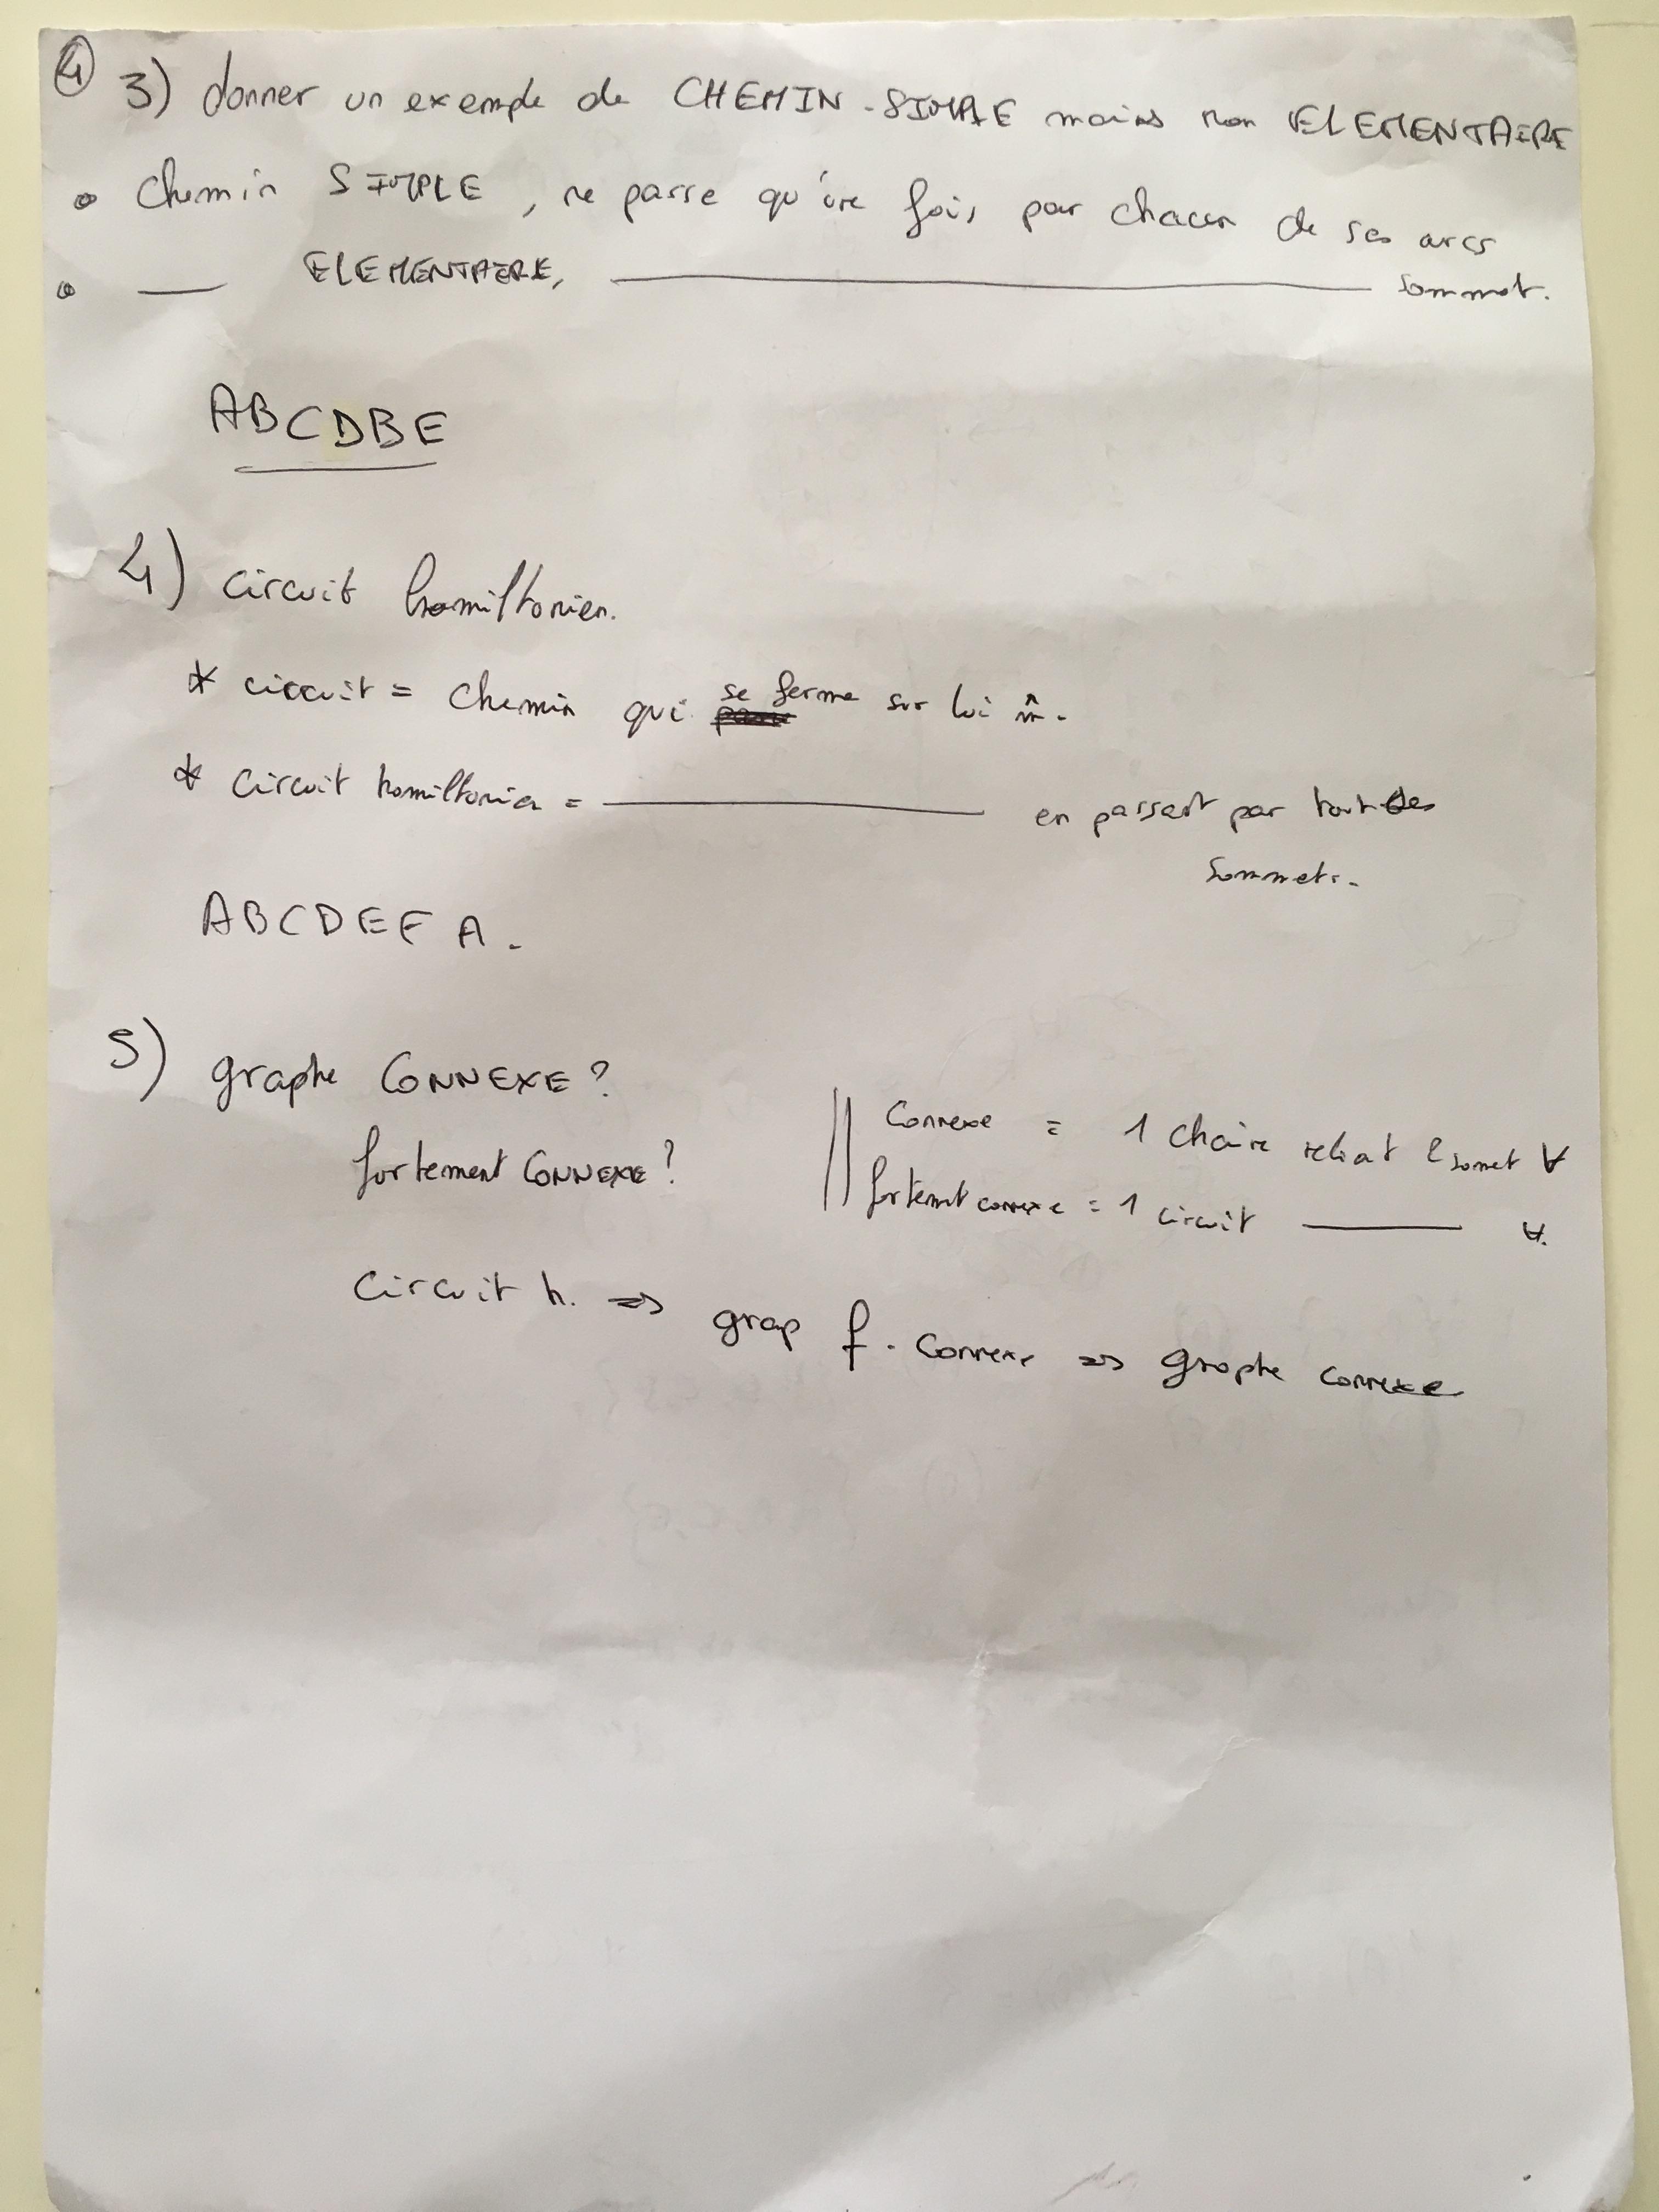 ④ 3) donner un exemple de CHEMIN-SIMPLE mais non ELEMENTAIRE
• Chemin SIMPLE, ne passe qu'une fois par chacun de ses arcs
• — ELEMENTAIRE, — sommet.
ABCDBE
4) circuit hamiltonien.
* circuit = chemin qui se ferme sur lui m̂.
* circuit hamiltonien = — en passant par tout les
sommets.
ABCDEFA.
5) graphe CONNEXE?
Connexe = 1 chaine reliant 2 sommet ∀
fortement CONNEXE?
fortement connexe = 1 circuit — ∀.
Circuit h. => grap f. connexe => graphe connexe